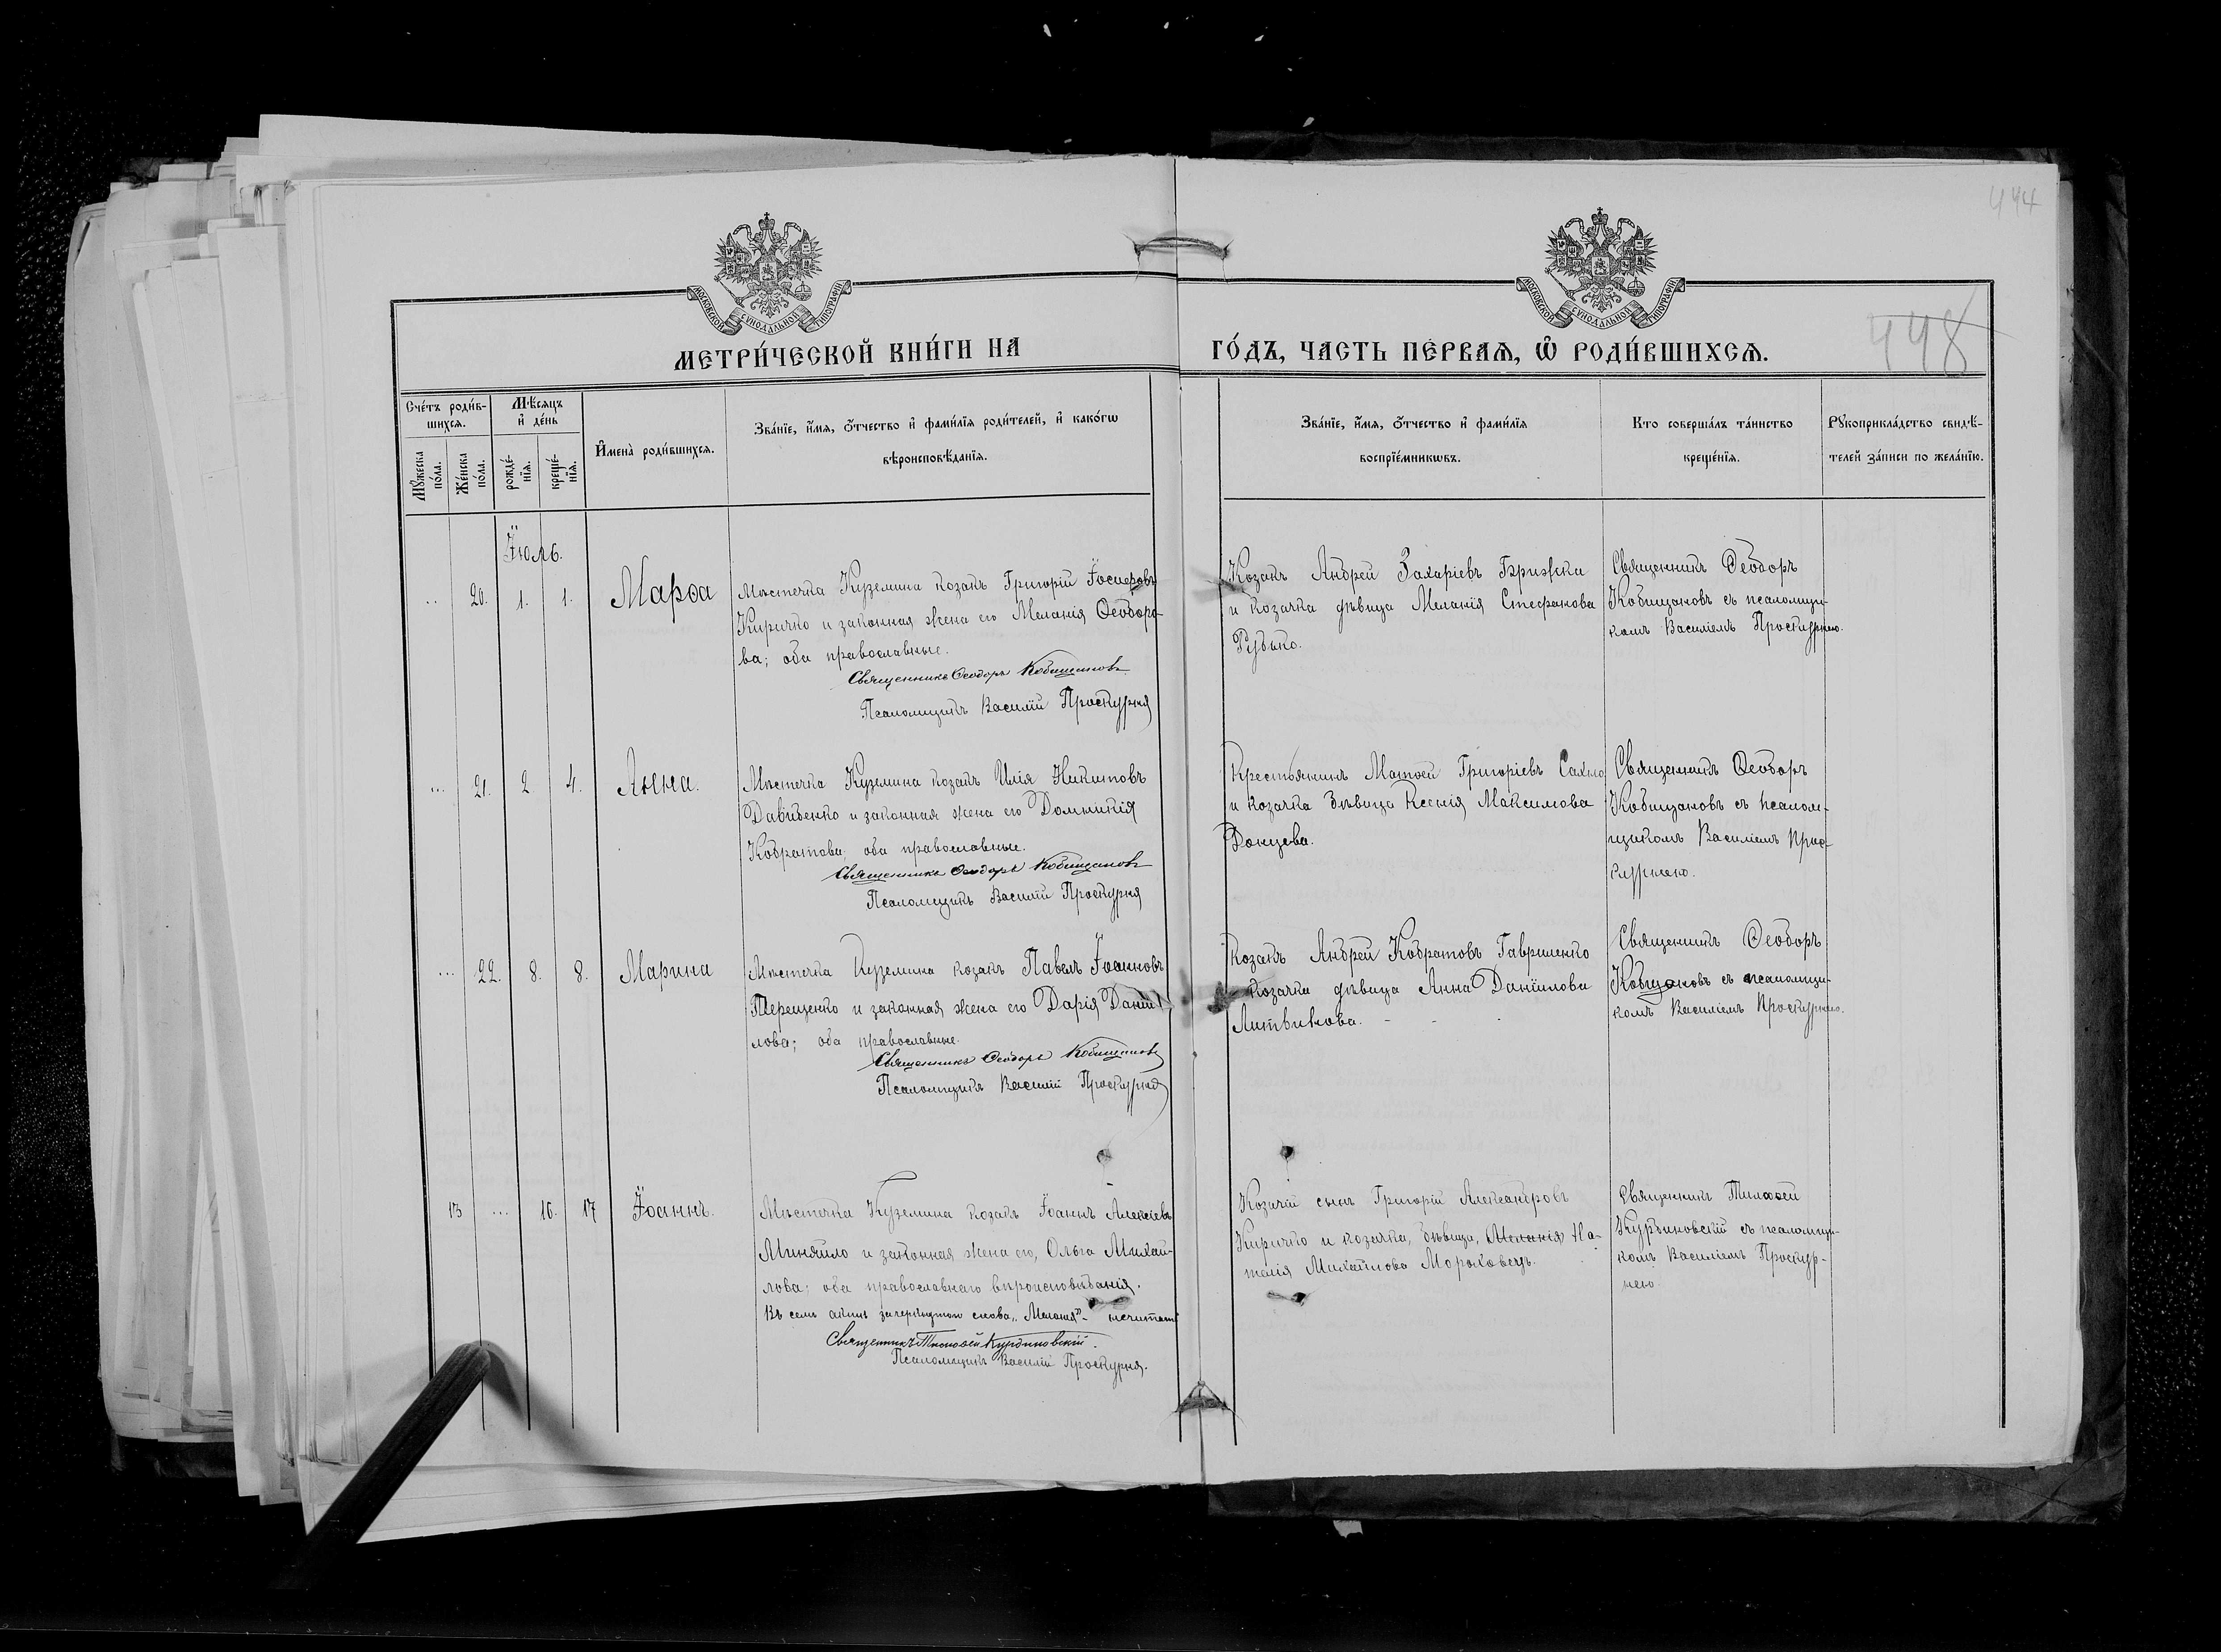 444
МОСКОВСКОЙ СУНОДАЛЬНОЙ ТИПОГРАФІИ
МОСКОВСКОЙ СУНОДАЛЬНОЙ ТИПОГРАФІИ
448
МЕТРИ́ЧЕСКОЙ КНИ́ГИ НА
ГО́ДЪ, ЧАСТЬ ПЕ́РВАЯ, Ѿ РОДИ́ВШИХСЯ.
Сче́тъ роди́в-
шихся.
Мѣ́сяцъ
и҆ де́нь
Мꙋ́жеска
по́ла.
Же́нска
по́ла.
рожде́-
нїя.
креще́-
нїя.
И҆мена̀ роди́вшихся.
Зва́нїе, и҆́мя, ѻ҆́тчество и҆ фами́лїя роди́телей, и҆ како́гѡ
вѣроисповѣ́данїя.
Зва́нїе, и҆́мя, ѻ҆́тчество и҆ фами́лїя
воспрїе́мникѡвъ.
Кто соверша́лъ та́инство
креще́нїя.
Рꙋкоприкла́дство свидѣ́-
телей за́писи по жела́нїю.
Іюль.
20. 1. 1. Марѳа
Мѣстечка Куземина козакъ Григорій Іосифовъ
Киричко и законная жена его Меланія Ѳеодоро-
ва; оба православные.
Священникъ Ѳеодоръ Кобищановъ
Псаломщикъ Василій Проскурня
Козакъ Андрей Захаріевъ
и козачка дѣвица Меланія Стефанова
Рубько.
Священникъ Ѳеодоръ
Кобищановъ съ псаломщи-
комъ Василіемъ Проскурнею.
21. 2. 4. Анна.
Мѣстечка Куземина козакъ Илія Никитовъ
Давиденко и законная жена его Домникія
Кодратова; оба православные.
Священникъ Ѳеодоръ Кобищановъ
Псаломщикъ Василій Проскурня
Крестьянинъ Матѳей Григоріевъ Сахно
и козачка дѣвица Ксенія Максимова
Донцева.
Священникъ Ѳеодоръ
Кобищановъ съ псалом-
щикомъ Василіемъ Прос-
курнею.
22. 8. 8. Марина
Мѣстечка Куземина козакъ Павелъ Іоанновъ
Терещенко и законная жена его Дарія Даніи-
лова; оба православные.
Священникъ Ѳеодоръ Кобищановъ
Псаломщикъ Василій Проскурня
Козакъ Андрей Кодратовъ Гавриленко
козачка дѣвица Анна Даніилова
Литвинова.
Священникъ Ѳеодоръ
Кобищановъ съ псаломщи-
комъ Василіемъ Проскурнею.
13 16. 17 Іоаннъ.
Мѣстечка Куземина козакъ Іоаннъ Алексіевъ
Миняйло и законная жена его, Ольга Михай-
лова; оба православнаго вѣроисповѣданія.
Въ семъ актѣ зачеркнутое слово „Меланія" не читать
Священникъ Тимоѳей Курдиновскій.
Псаломщикъ Василій Проскурня.
Козачій сынъ Григорій Александровъ
Киричко и козачка, дѣвица, Меланія На-
талія Михайлова Мороховецъ.
Священникъ Тимоѳей
Курдиновскій съ псаломщи-
комъ Василіемъ Проскур-
нею.